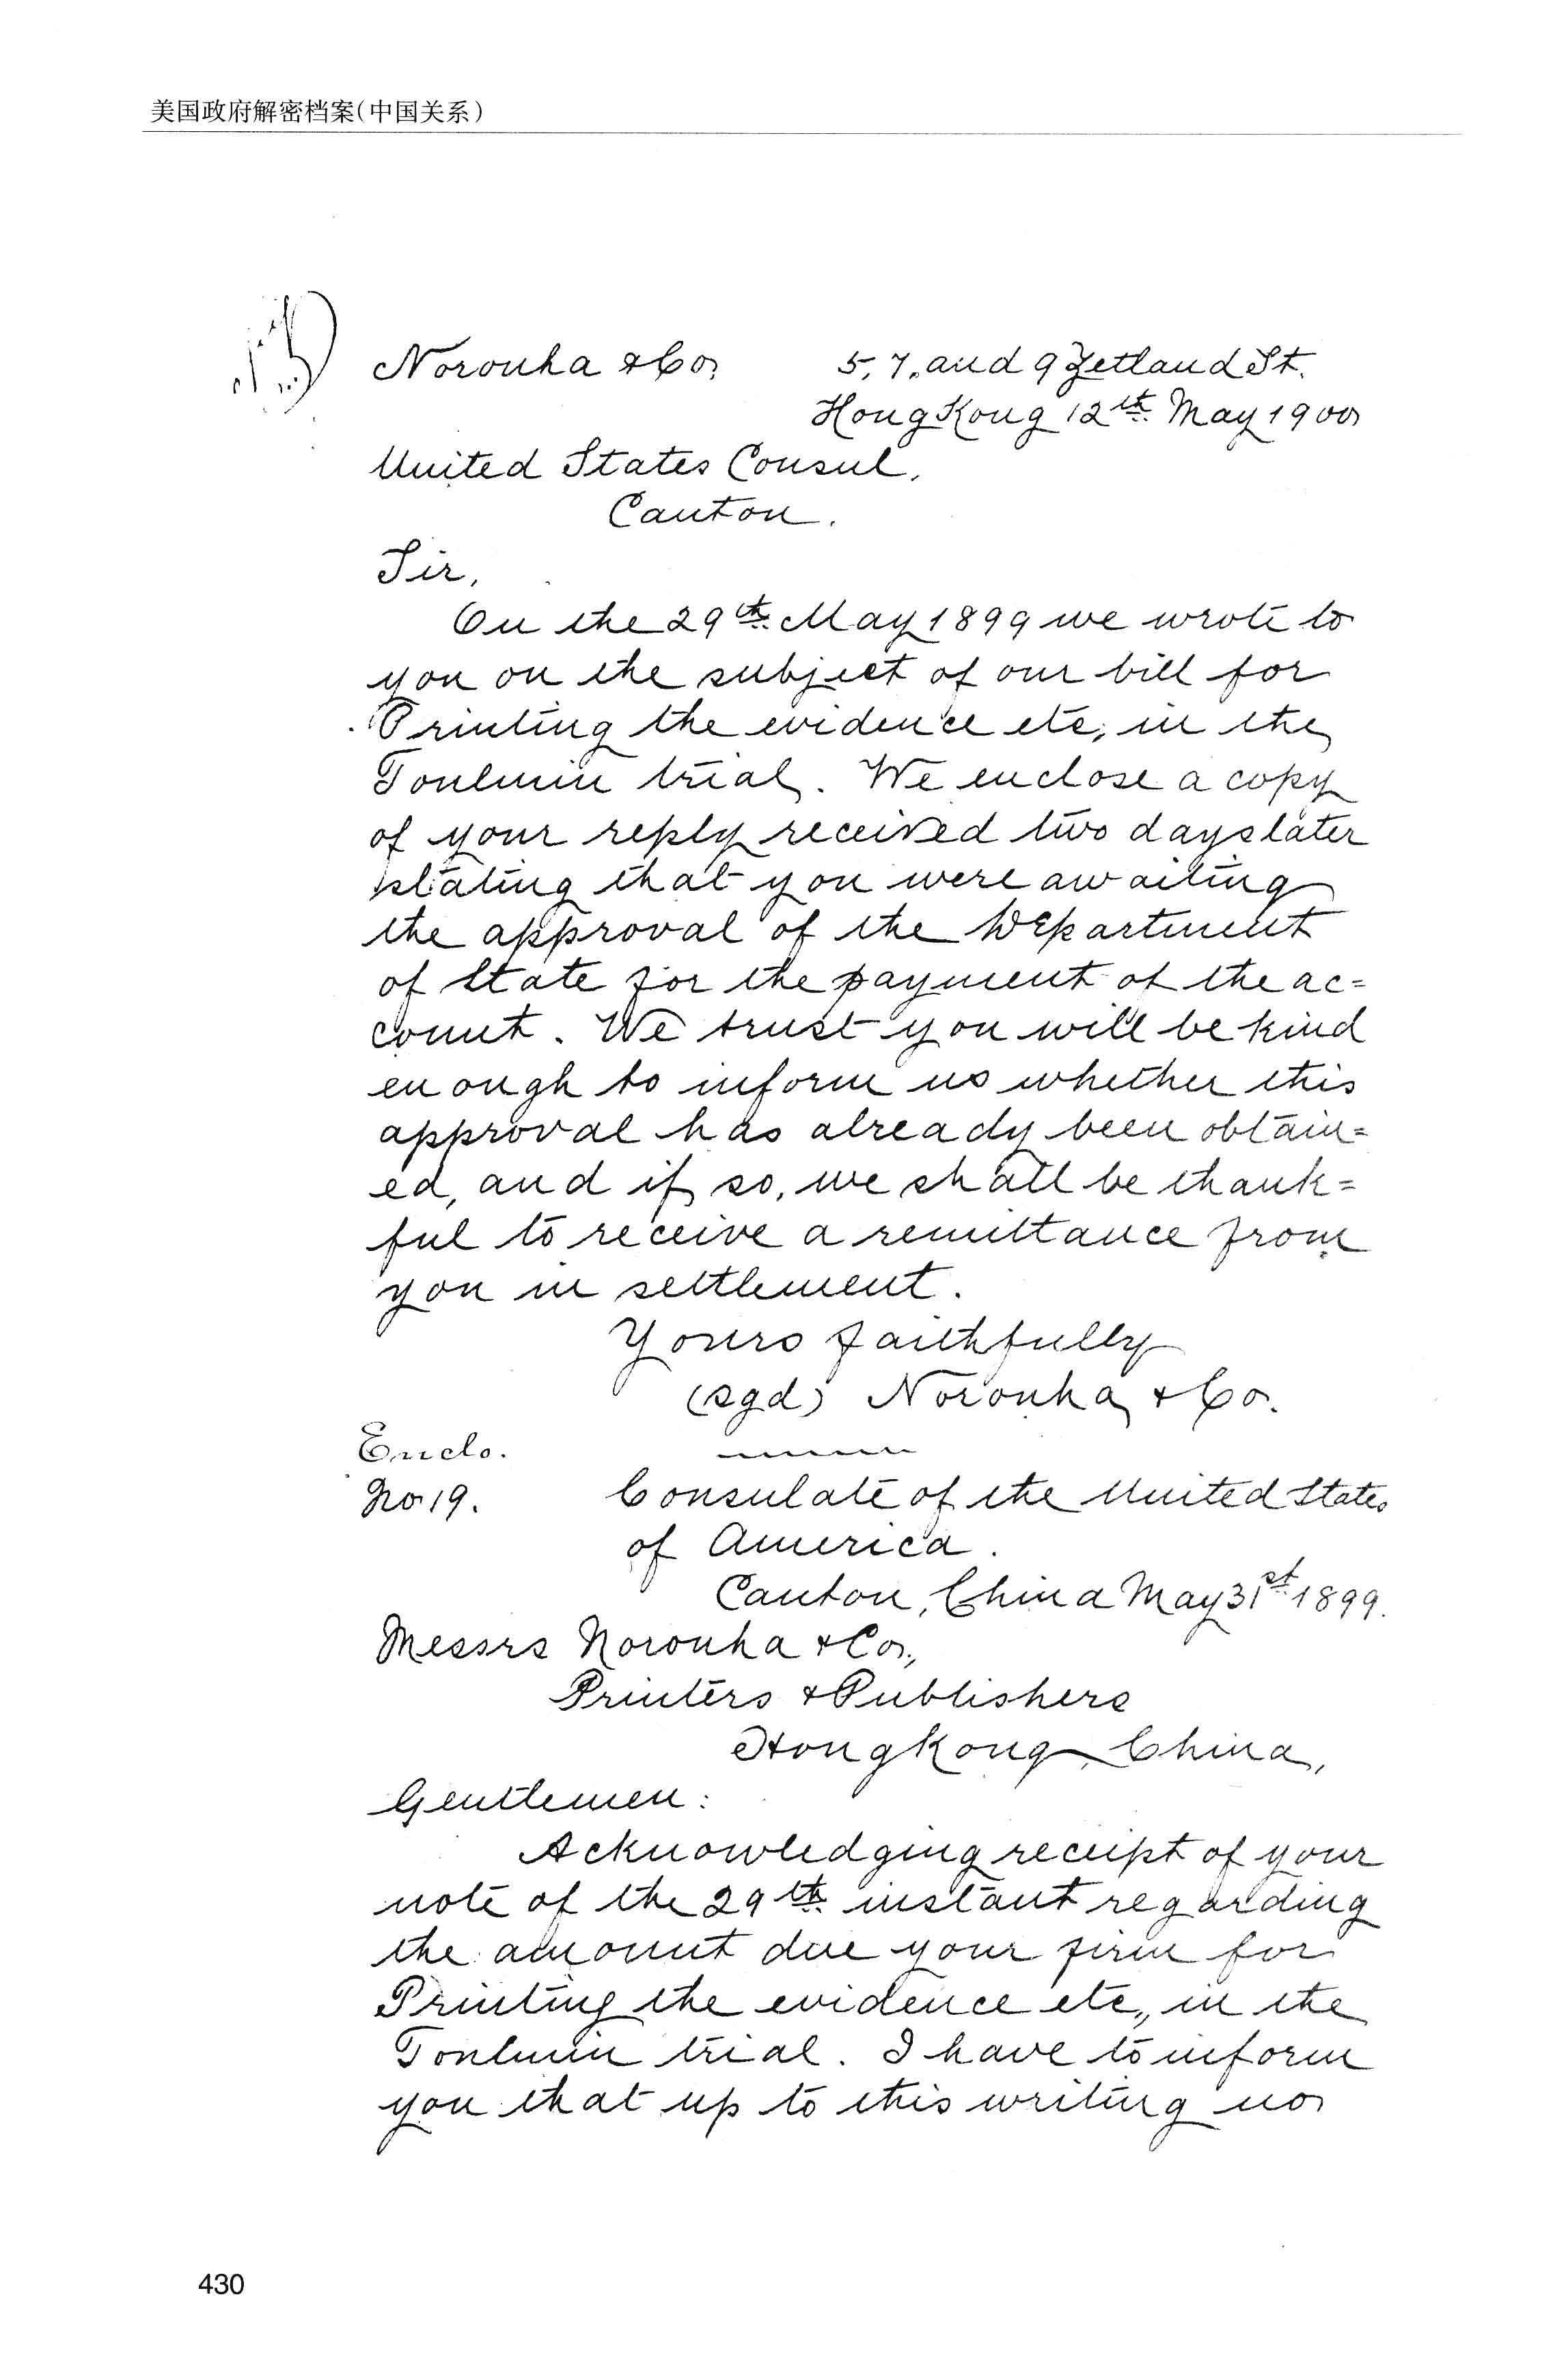 美国政府解密档案(中国关系)
Noronha & Co. 5, 7, and 9 Zetland St.
HongKong 12th May 1900
United States Consul,
Canton.
Sir,
On the 29th May 1899 we wrote to
you on the subject of our bill for
Printing the evidence etc, in the
Toulmin trial. We enclose a copy
of your reply received two days later
stating that you were awaiting
the approval of the Department
of State for the payment of the ac=
count. We trust you will be kind
enough to inform us whether this
approval has already been obtain=
ed, and if so, we shall be thank=
ful to receive a remittance from
you in settlement.
Yours faithfully
(sgd) Noronha & Co.
Enclo.
No 19. Consulate of the United States
of America.
Canton, China May 31st 1899.
Messrs Noronha & Co.,
Printers & Publishers
Hongkong, China,
Gentlemen:
Acknowledging receipt of your
note of the 29th instant regarding
the amount due your firm for
Printing the evidence etc., in the
Toulmin trial. I have to inform
you that up to this writing no
430